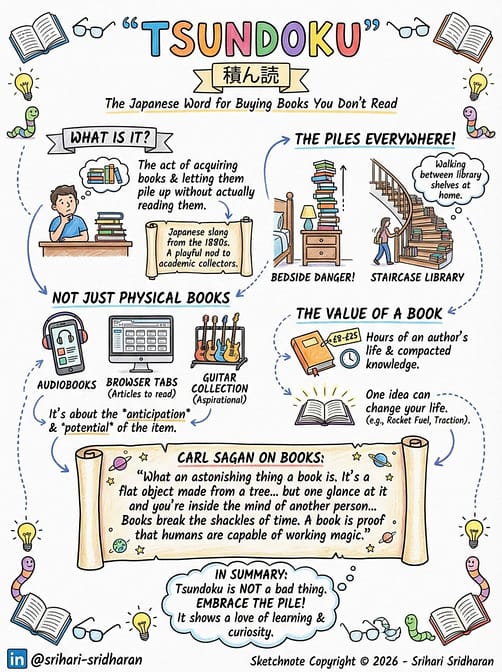 “TSUNDOKU”
積ん読
The Japanese Word for Buying Books You Don't Read
WHAT IS IT?
The act of acquiring
books & letting them
pile up without actually
reading them.
Japanese slang
from the 1880s.
A playful nod to
academic collectors.
THE PILES EVERYWHERE!
Walking
between library
shelves at
home.
BEDSIDE DANGER!
STAIRCASE LIBRARY
NOT JUST PHYSICAL BOOKS
AUDIOBOOKS
BROWSER TABS
(Articles to read)
GUITAR
COLLECTION
(Aspirational)
It's about the *anticipation*
& *potential* of the item.
THE VALUE OF A BOOK
£8-£25
Hours of an author's
life & compacted
knowledge.
One idea can
change your life.
(e.g., Rocket Fuel, Traction).
CARL SAGAN ON BOOKS:
“What an astonishing thing a book is. It's a
flat object made from a tree... but one glance at it
and you're inside the mind of another person...
Books break the shackles of time. A book is proof
that humans are capable of working magic.”
IN SUMMARY:
Tsundoku is NOT a bad thing.
EMBRACE THE PILE!
It shows a love of learning &
curiosity.
in @srihari-sridharan
Sketchnote Copyright © 2026 - Srihari Sridharan